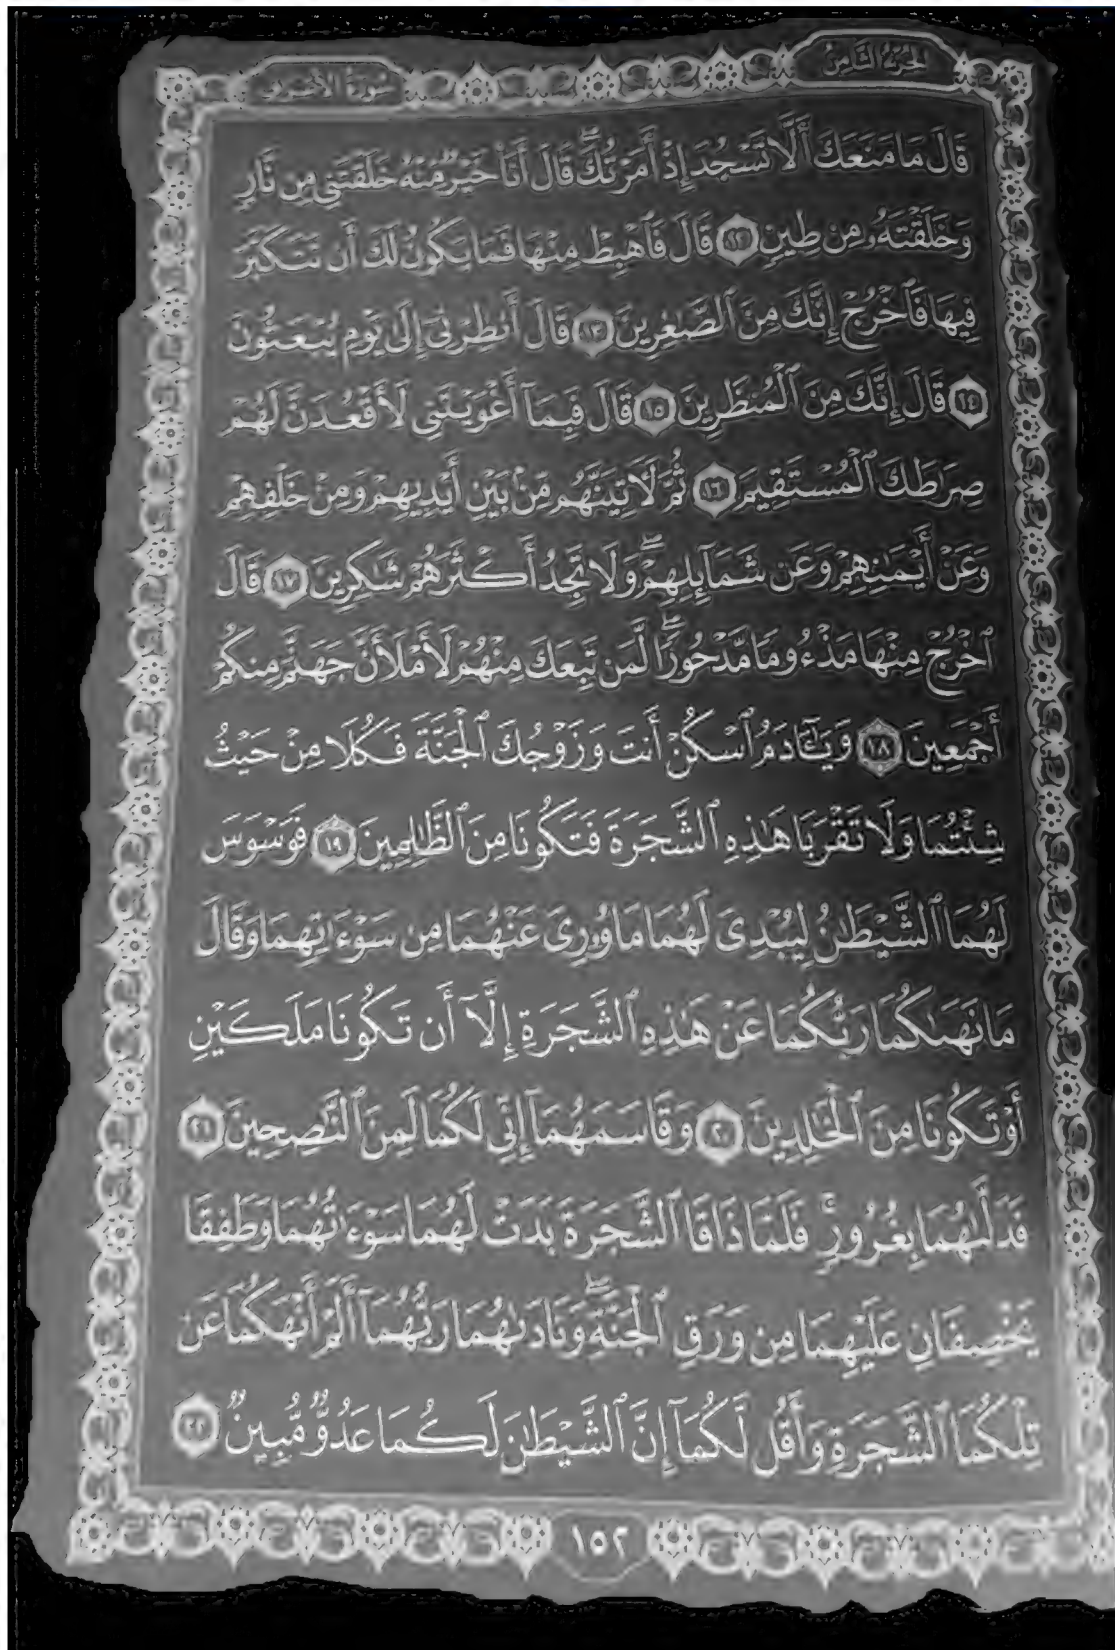 الجزء الثامن
سورة الأعراف
قَالَ مَا مَنَعَكَ أَلَّا تَسْجُدَ إِذْ أَمَرْتُكَ ۖ قَالَ أَنَا۠ خَيْرٌ مِّنْهُ خَلَقْتَنِى مِن نَّارٍ
وَخَلَقْتَهُۥ مِن طِينٍ ١٢ قَالَ فَٱهْبِطْ مِنْهَا فَمَا يَكُونُ لَكَ أَن تَتَكَبَّرَ
فِيهَا فَٱخْرُجْ إِنَّكَ مِنَ ٱلصَّٰغِرِينَ ١٣ قَالَ أَنظِرْنِىٓ إِلَىٰ يَوْمِ يُبْعَثُونَ
١٤ قَالَ إِنَّكَ مِنَ ٱلْمُنظَرِينَ ١٥ قَالَ فَبِمَآ أَغْوَيْتَنِى لَأَقْعُدَنَّ لَهُمْ
صِرَٰطَكَ ٱلْمُسْتَقِيمَ ١٦ ثُمَّ لَءَاتِيَنَّهُم مِّنۢ بَيْنِ أَيْدِيهِمْ وَمِنْ خَلْفِهِمْ
وَعَنْ أَيْمَٰنِهِمْ وَعَن شَمَآئِلِهِمْ ۖ وَلَا تَجِدُ أَكْثَرَهُمْ شَٰكِرِينَ ١٧ قَالَ
ٱخْرُجْ مِنْهَا مَذْءُومًا مَّدْحُورًا ۖ لَّمَن تَبِعَكَ مِنْهُمْ لَأَمْلَأَنَّ جَهَنَّمَ مِنكُمْ
أَجْمَعِينَ ١٨ وَيَٰٓـَٔادَمُ ٱسْكُنْ أَنتَ وَزَوْجُكَ ٱلْجَنَّةَ فَكُلَا مِنْ حَيْثُ
شِئْتُمَا وَلَا تَقْرَبَا هَٰذِهِ ٱلشَّجَرَةَ فَتَكُونَا مِنَ ٱلظَّٰلِمِينَ ١٩ فَوَسْوَسَ
لَهُمَا ٱلشَّيْطَٰنُ لِيُبْدِىَ لَهُمَا مَا وُۥرِىَ عَنْهُمَا مِن سَوْءَٰتِهِمَا وَقَالَ
مَا نَهَىٰكُمَا رَبُّكُمَا عَنْ هَٰذِهِ ٱلشَّجَرَةِ إِلَّآ أَن تَكُونَا مَلَكَيْنِ
أَوْ تَكُونَا مِنَ ٱلْخَٰلِدِينَ ٢٠ وَقَاسَمَهُمَآ إِنِّى لَكُمَا لَمِنَ ٱلنَّٰصِحِينَ ٢١
فَدَلَّىٰهُمَا بِغُرُورٍ ۚ فَلَمَّا ذَاقَا ٱلشَّجَرَةَ بَدَتْ لَهُمَا سَوْءَٰتُهُمَا وَطَفِقَا
يَخْصِفَانِ عَلَيْهِمَا مِن وَرَقِ ٱلْجَنَّةِ ۖ وَنَادَىٰهُمَا رَبُّهُمَآ أَلَمْ أَنْهَكُمَا عَن
تِلْكُمَا ٱلشَّجَرَةِ وَأَقُل لَّكُمَآ إِنَّ ٱلشَّيْطَٰنَ لَكُمَا عَدُوٌّ مُّبِينٌ ٢٢
١٥٢